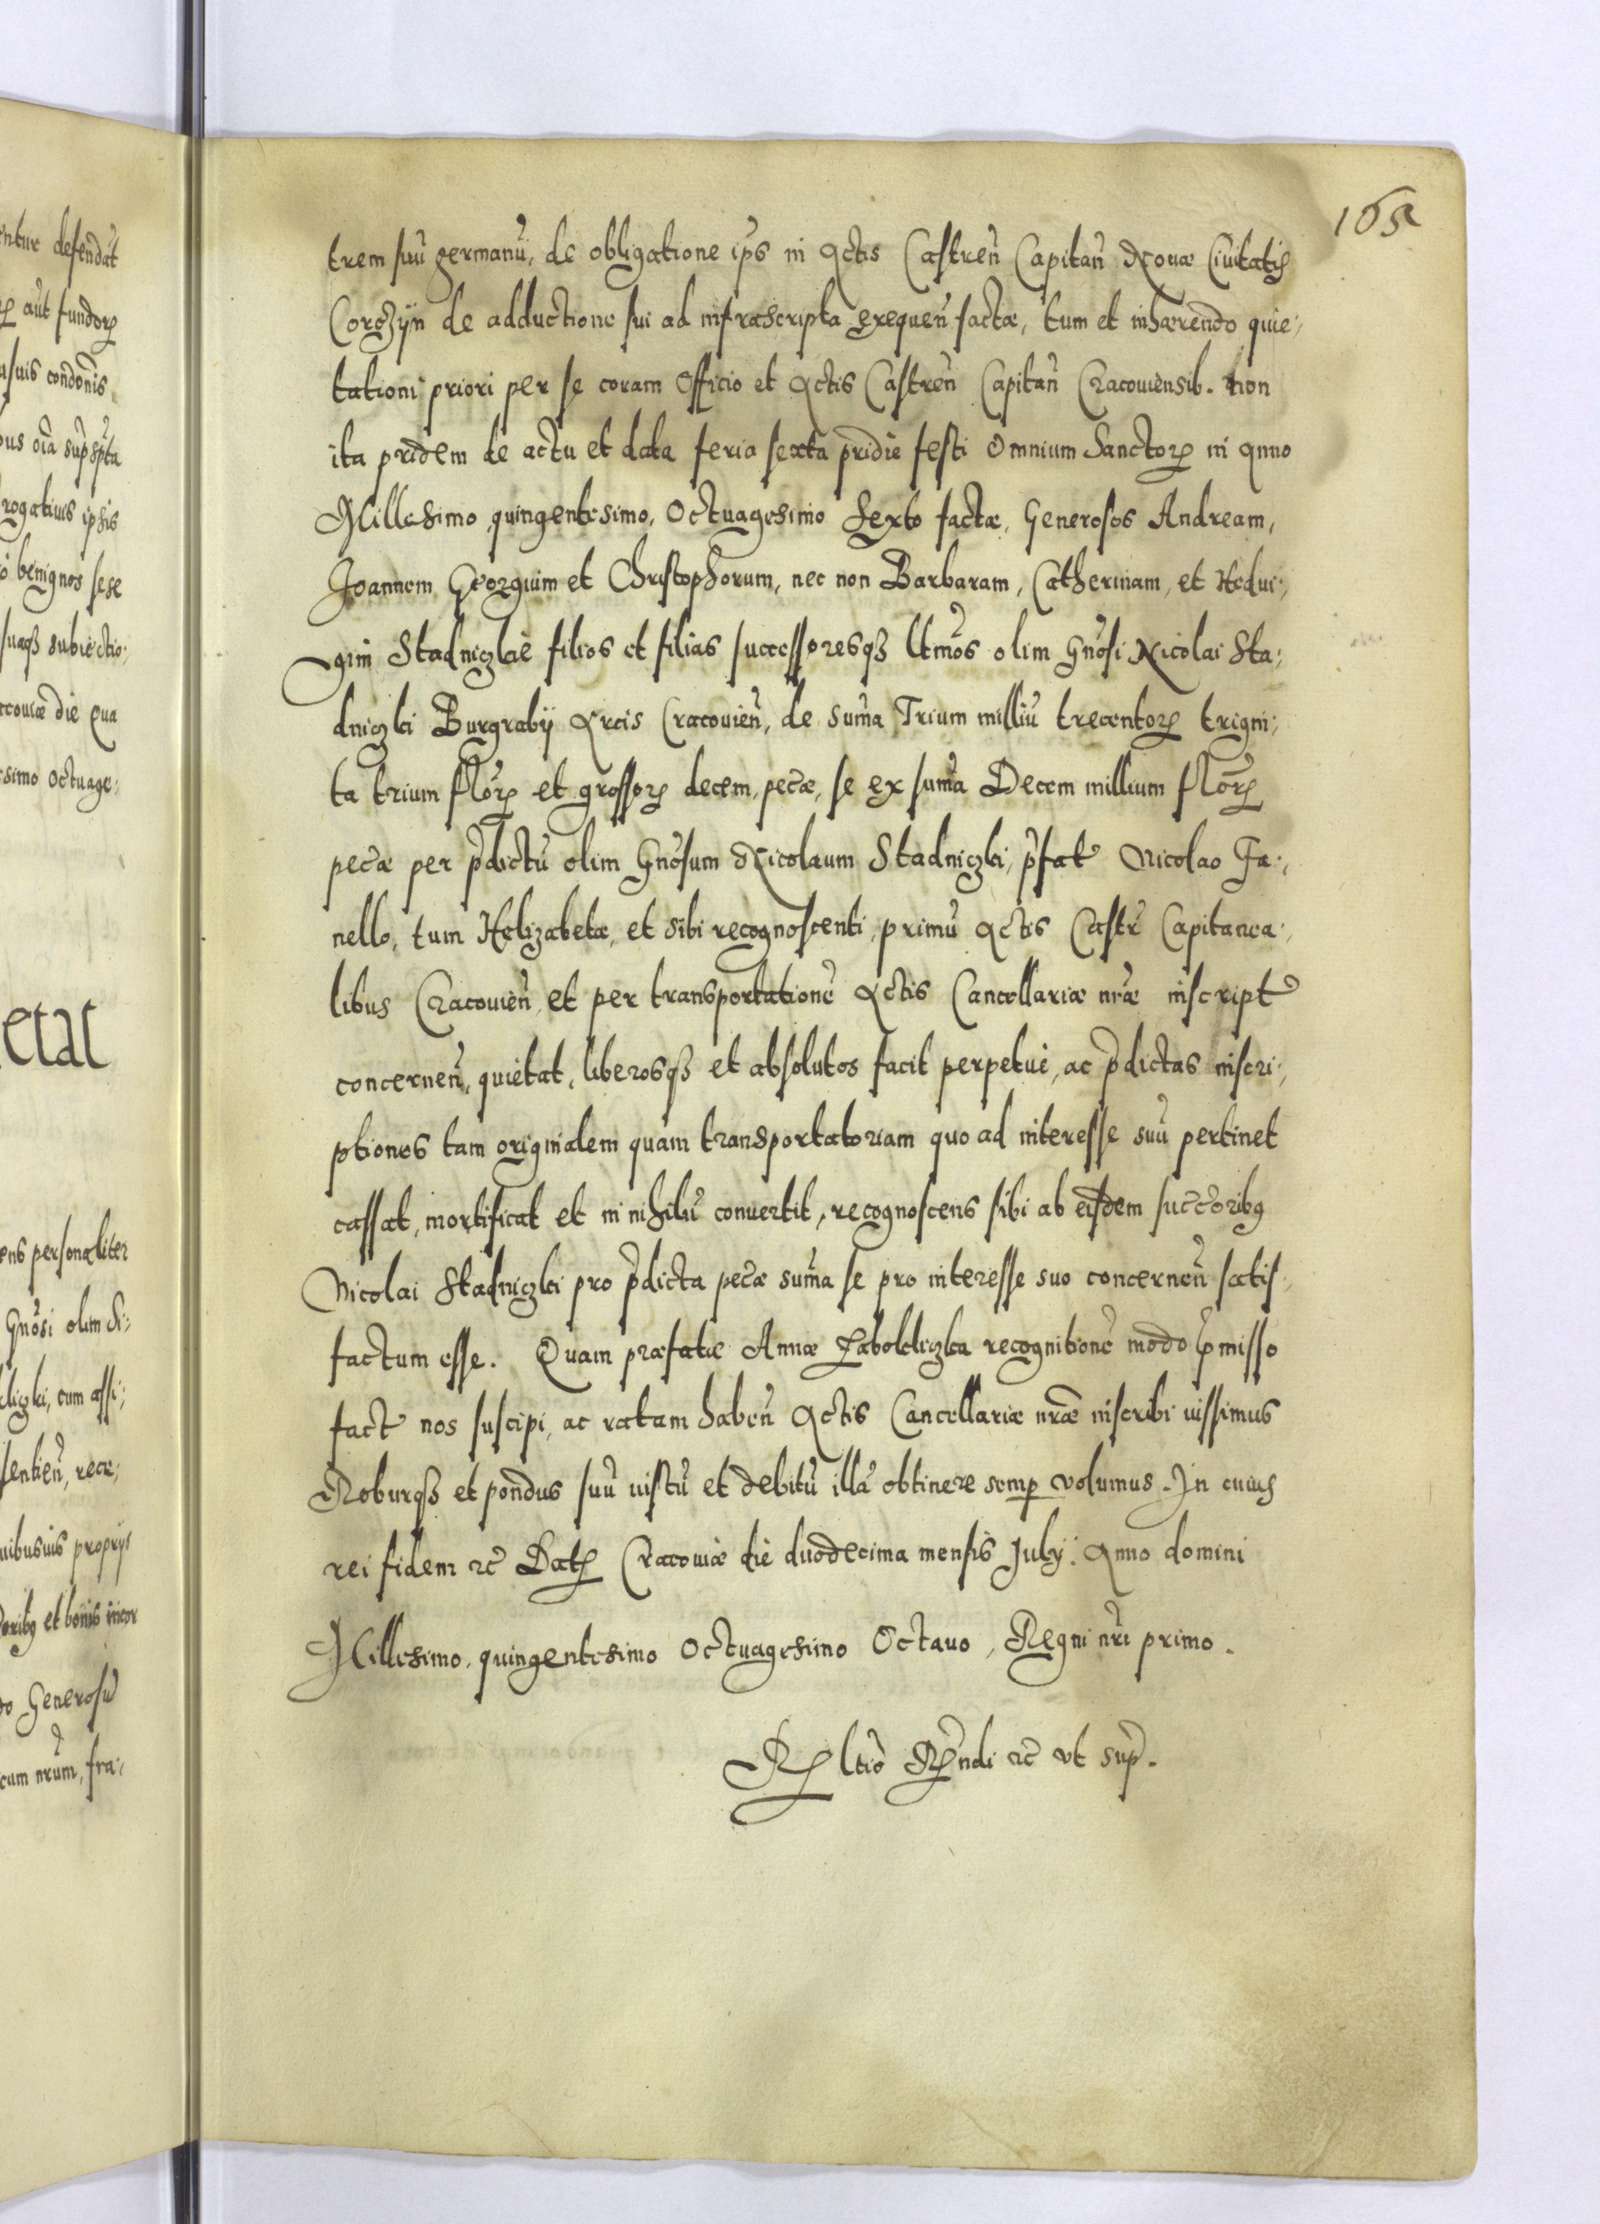 165
trem suũ germanũ, de obligatione ip̃s in Actis Castreñ Capitañ Nouæ Ciuitatis
Corczÿn de adductione sui ad infrascripta exequeñ factæ, tum et inhærendo quie:
tationi priori per se coram Officio et Actis Castreñ Capitañ Cracouiensib. non
ita pridem de actu et data feria sexta pridie festi Omnium Sanctorꝝ in Anno
Millesimo, quingentesimo, Octuagesimo Sexto factæ, Generosos Andream,
Joannem Georgium et Christophorum, nec non Barbaram, Catherinam, et Hedui:
gim Stadniczkie filios et filias successoresqꝫ lt̃mos olim Gnõsi Nicolai Sta:
dniczki Burgrabÿ Arcis Cracouieñ, de sum̃a Trium milliũ trecentorꝝ trigin:
ta trium flõrꝝ et grossorꝝ decem, pec̃æ, se ex sum̃a Decem millium flõrꝝ
pec̃æ per p̃dictũ olim Gnõsum Nicolaum Stadniczki, p̃fat Nicolao Fa:
nello, tum Helizabetæ, et sibi recognoscenti, primũ Actis Castr̃ Capitanea:
libus Cracouieñ et per transportationẽ Actis Cancellariæ nr̃æ inscript
concerneñ, quietat, liberosqꝫ et absolutos facit perpetuè, ac p̃dictas inscri:
ptiones tam originalem quam transportatoriam quo ad interesse suũ pertinet
cassat, mortificat et in nihilũ conuertit, recognoscens sibi ab eisdem succõribꝯ
Nicolai Stadniczki pro p̃dicta pec̃æ sum̃a se pro interesse suo concerneñ satis:
factum esse. Quam præfatæ Annæ Zakokliczka recognitionẽ modo p̃misso
fact nos suscipi, ac ratam habeñ Actis Cancellariæ nr̃æ inscribi iussimus
Roburqꝫ et pondus suũ iustũ et debitũ illã obtinere semp volumus. In cuius
rei fidem ꝛc̃ Datꝭ Cracouiæ die duodecima mensis Julÿ. Anno domini
Millesimo, quingentesimo Octuagesimo Octauo, Regni nr̃i primo.
Rꝭ ltiõ Rñdi ꝛc̃ vt sup̃.